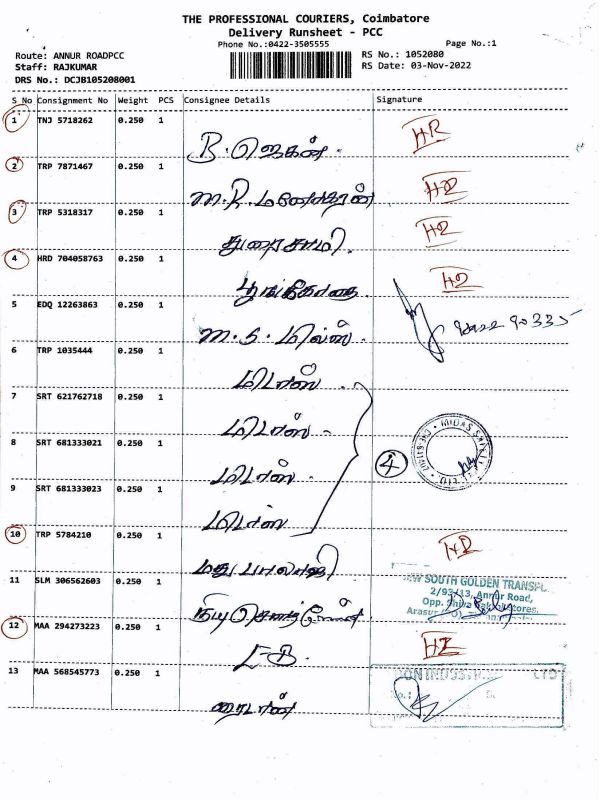 THE PROFESSIONAL COURIERS, Coimbatore
Delivery Runsheet - PCC
Phone No.:0422-3505555
Page No.:1
Route: ANNUR ROADPCC
Staff: RAJKUMAR
DRS No.: DCJB105208001
RS No.: 1052080
RS Date: 03-Nov-2022
S No Consignment No Weight PCS Consignee Details Signature
1 TNJ 5718262 0.250 1
B. ஜெகன்
2 TRP 7871467 0.250 1
M.R. மனோகரன்
3 TRP 5318317 0.250 1
துரைசாமி
4 HRD 704058763 0.250 1
பூங்கோதை
5 EDQ 12263863 0.250 1
M.S. மில்ஸ்
6 TRP 1035444 0.250 1
மிடாஸ்
7 SRT 621762718 0.250 1
மிடாஸ்
8 SRT 681333021 0.250 1
மிடாஸ்
4
9 SRT 681333023 0.250 1
மிடாஸ்
10 TRP 5784210 0.250 1
மது பாலாஜி
11 SLM 306562603 0.250 1
SOUTH GOLDEN
2/93/13, Annur Road,
Opp.
Arasur
12 MAA 294273223 0.250 1
EB
13 MAA 568545773 0.250 1